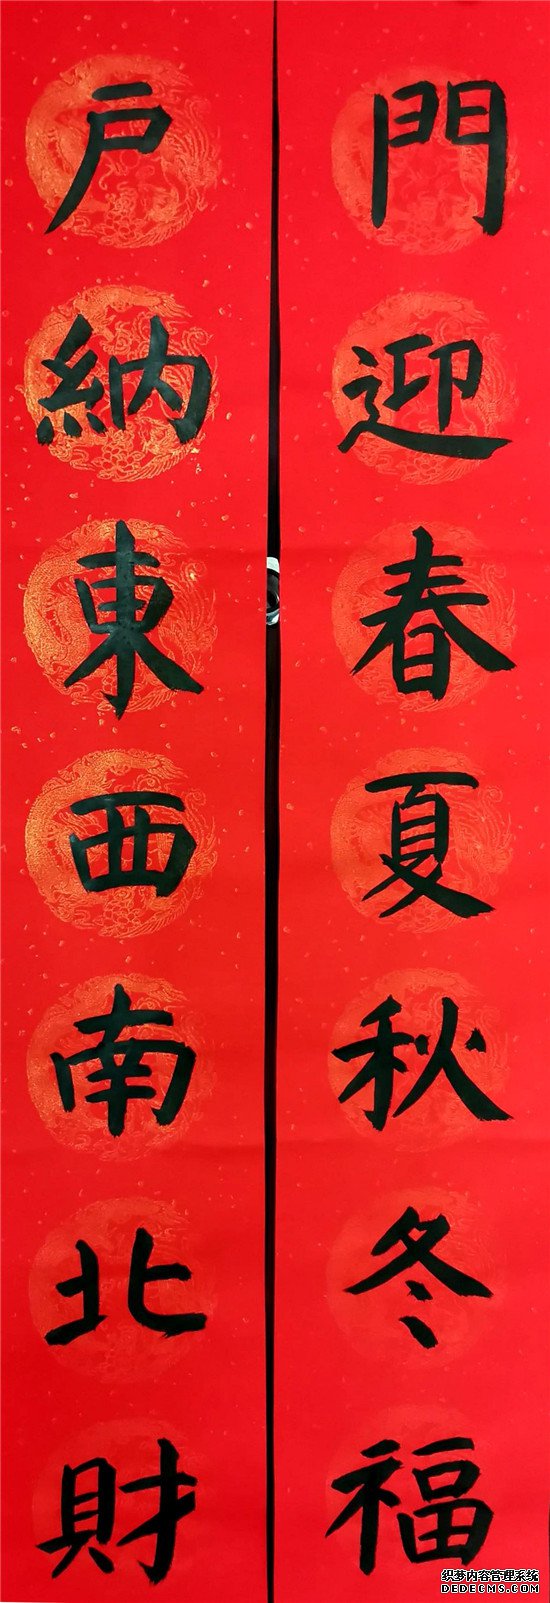 門迎春夏秋冬福
戶納東西南北財
织梦内容管理系统
DEDECMS.COM